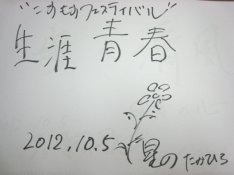 "こすもすフェスティバル"
生涯青春
2012.10.5
星の たかひろ